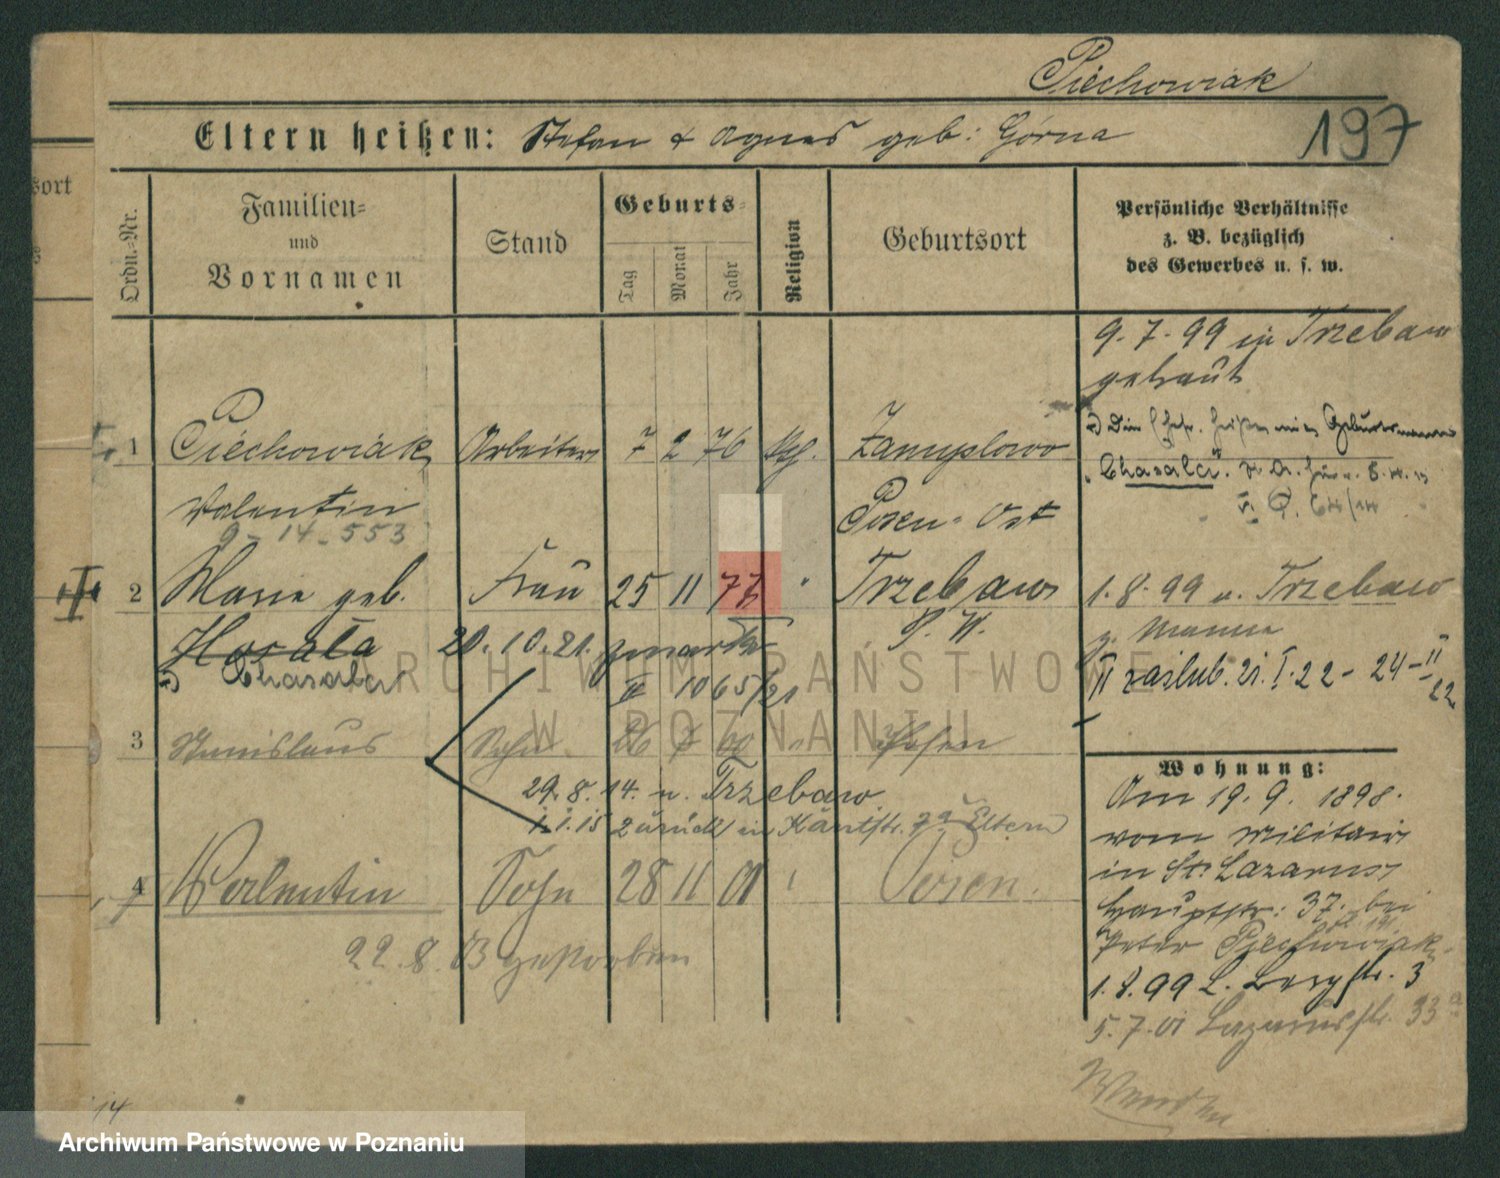 Piechowiak
Eltern heißen: Stefan & Agnes geb: Górna
197
sort
Ordn.-Nr.
Familien- und Vornamen
Stand
Geburts-
Tag
Monat
Jahr
Religion
Geburtsort
Persönliche Verhältnisse
z. B. bezüglich
des Gewerbes u. s. w.
9.7.99 in Trzebaw
getraut
1 Piechowiak Arbeiter 7 2 76 Kth.
Chasala
Valentin
Posen-Ost
9-14-553
2 Marie geb. Frau 25 11 77 " Trzebaw
1.8.99 n. Trzebaw
Horała 20.10.21. zmarła
Chasala
II 1065/21
II zaślub. 21.I.22 - 24-II 22
ARCHIWUM PAŃSTWOWE
W POZNANIU
3 Stanislaus Sohn 26 Posen
29.8.14. n. Trzebaw
1.1.15 zurück in Eltern
4 Valentin Sohn 28 11 01 Posen.
22.8. 03 gestorben
Wohnung:
Am 19.9. 1898.
vom Militair
in St. Lazarus,
Hauptstr: 37. bei
Peter Piechowiak
1.8.99 L. Bergstr. 3
5.7.01 Lazarusstr. 33a
14
Archiwum Państwowe w Poznaniu